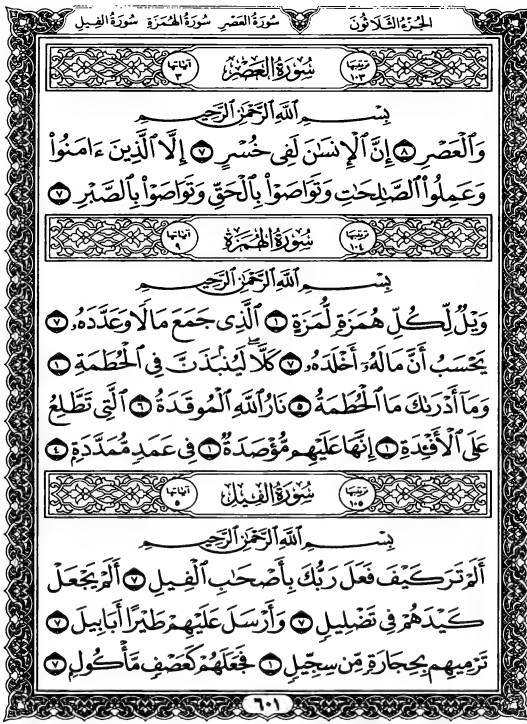 الجُزءُ الثَّلَاثُونَ سُورَةُ العَصْرِ سُورَةُ الهُمَزَةِ سُورَةُ الفِيلِ
ترتيبها ١٠٣ سُورَةُ العَصْرِ آياتها ٣
بِسْمِ ٱللَّهِ ٱلرَّحْمَٰنِ ٱلرَّحِيمِ
وَٱلْعَصْرِ ٨ إِنَّ ٱلْإِنسَٰنَ لَفِى خُسْرٍ ٧ إِلَّا ٱلَّذِينَ ءَامَنُوا۟
وَعَمِلُوا۟ ٱلصَّٰلِحَٰتِ وَتَوَاصَوْا۟ بِٱلْحَقِّ وَتَوَاصَوْا۟ بِٱلصَّبْرِ ٧
ترتيبها ١٠٤ سُورَةُ الهُمَزَةِ آياتها ٩
بِسْمِ ٱللَّهِ ٱلرَّحْمَٰنِ ٱلرَّحِيمِ
وَيْلٌ لِّكُلِّ هُمَزَةٍ لُّمَزَةٍ ١ ٱلَّذِى جَمَعَ مَالًا وَعَدَّدَهُۥ ٧
يَحْسَبُ أَنَّ مَالَهُۥٓ أَخْلَدَهُۥ ٧ كَلَّا ۖ لَيُنۢبَذَنَّ فِى ٱلْحُطَمَةِ ١
وَمَآ أَدْرَىٰكَ مَا ٱلْحُطَمَةُ ٥ نَارُ ٱللَّهِ ٱلْمُوقَدَةُ ٦ ٱلَّتِى تَطَّلِعُ
عَلَى ٱلْأَفْـِٔدَةِ ١ إِنَّهَا عَلَيْهِم مُّؤْصَدَةٌ ١ فِى عَمَدٍ مُّمَدَّدَةٍۭ ٤
ترتيبها ١٠٥ سُورَةُ الفِيلِ آياتها ٥
بِسْمِ ٱللَّهِ ٱلرَّحْمَٰنِ ٱلرَّحِيمِ
أَلَمْ تَرَ كَيْفَ فَعَلَ رَبُّكَ بِأَصْحَٰبِ ٱلْفِيلِ ٧ أَلَمْ يَجْعَلْ
كَيْدَهُمْ فِى تَضْلِيلٍ ٧ وَأَرْسَلَ عَلَيْهِمْ طَيْرًا أَبَابِيلَ ٧
تَرْمِيهِم بِحِجَارَةٍ مِّن سِجِّيلٍ ١ فَجَعَلَهُمْ كَعَصْفٍ مَّأْكُولٍۭ ٧
٦٠١